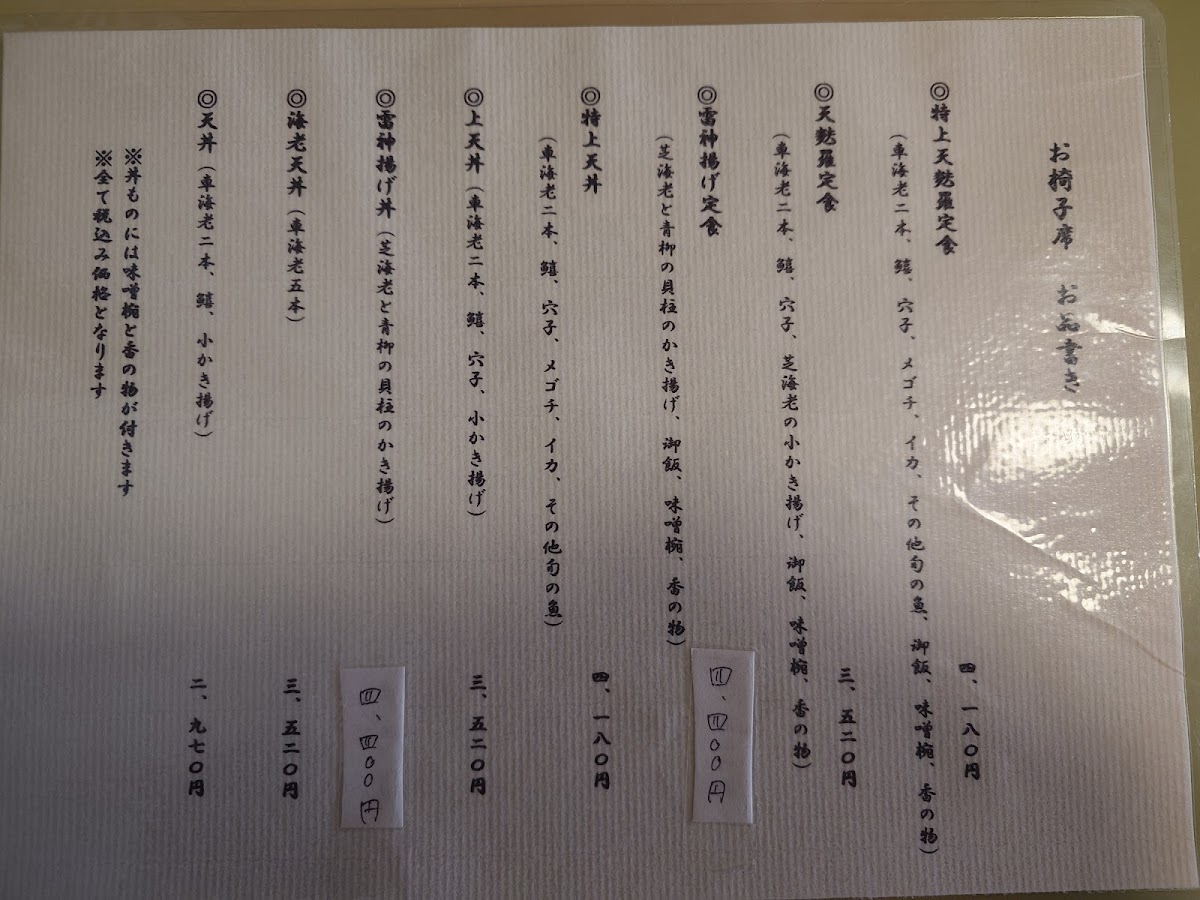 お椅子席　お品書き
◎特上天麩羅定食　四、一八〇円
（車海老二本、鱚、穴子、メゴチ、イカ、その他旬の魚、御飯、味噌椀、香の物）
◎天麩羅定食　三、五二〇円
（車海老二本、鱚、穴子、芝海老の小かき揚げ、御飯、味噌椀、香の物）
◎雷神揚げ定食　四、四〇〇円
（芝海老と青柳の貝柱のかき揚げ、御飯、味噌椀、香の物）
◎特上天丼　四、一八〇円
（車海老二本、鱚、穴子、メゴチ、イカ、その他旬の魚）
◎上天丼（車海老二本、鱚、穴子、小かき揚げ）　三、五二〇円
◎雷神揚げ丼（芝海老と青柳の貝柱のかき揚げ）　四、四〇〇円
◎海老天丼（車海老五本）　三、五二〇円
◎天丼（車海老二本、鱚、小かき揚げ）　二、九七〇円
※丼ものには味噌椀と香の物が付きます
※全て税込み価格となります